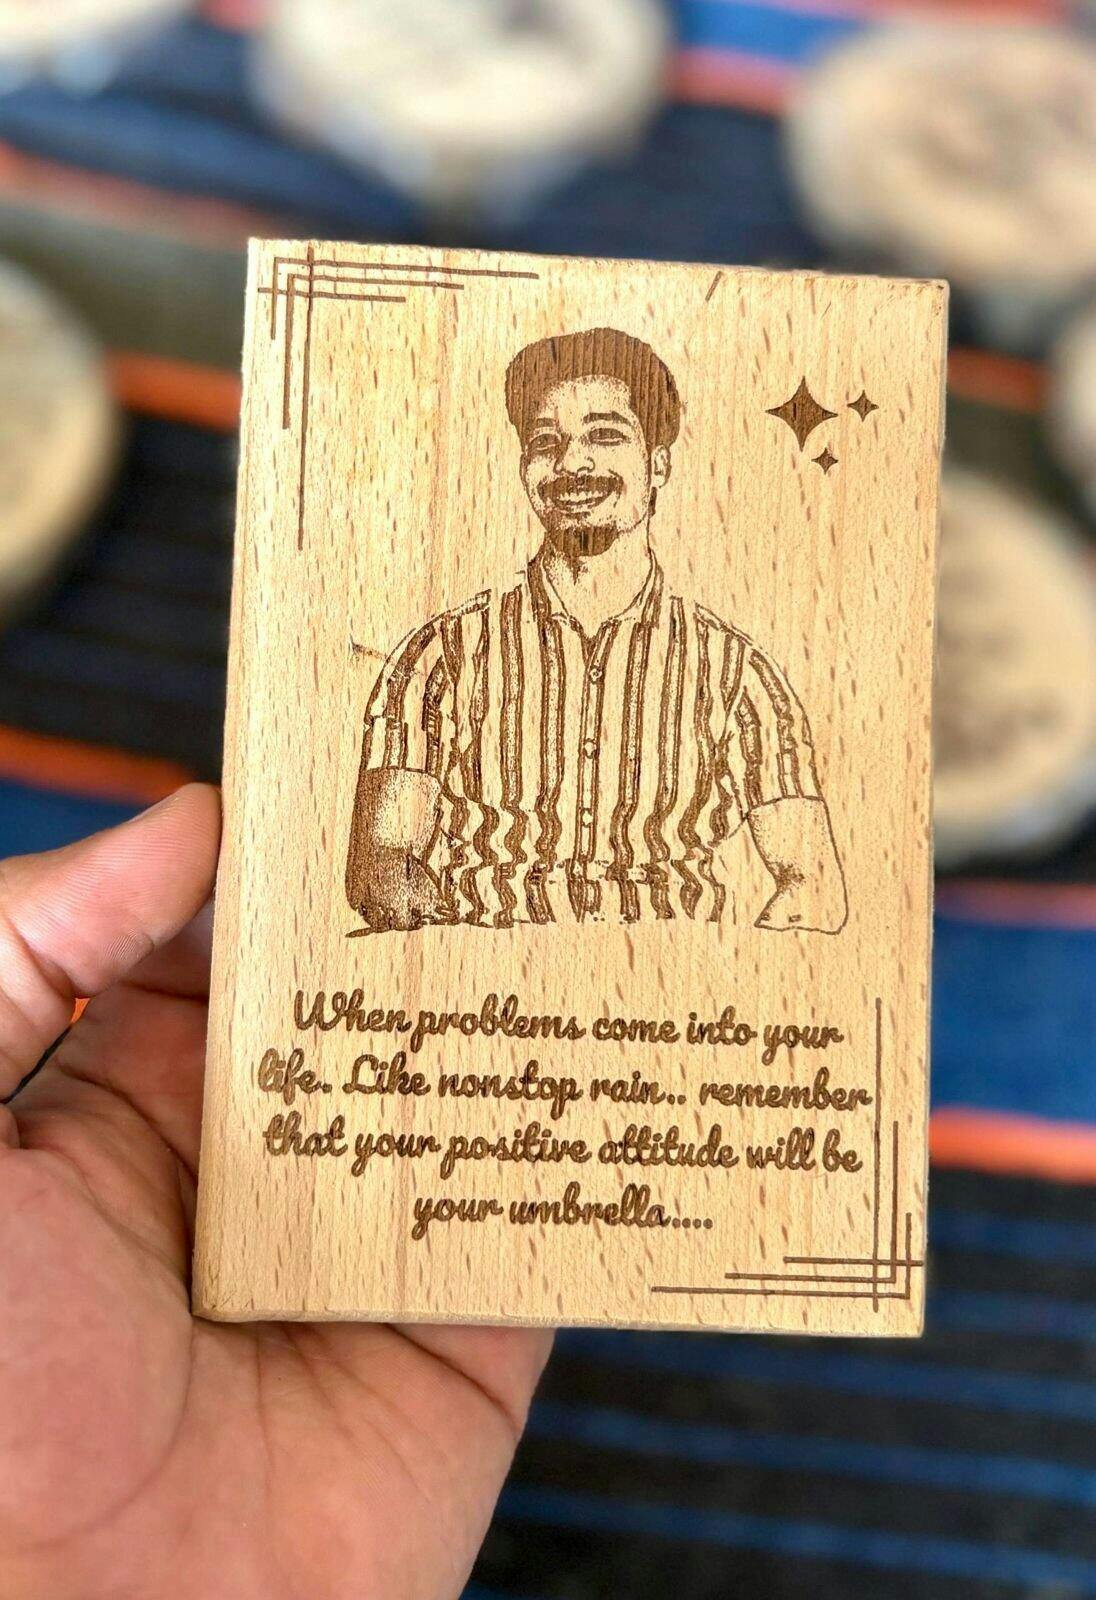 When problems come into your
life.. Like nonstop rain.. remember
that your positive attitude will be
your umbrella....